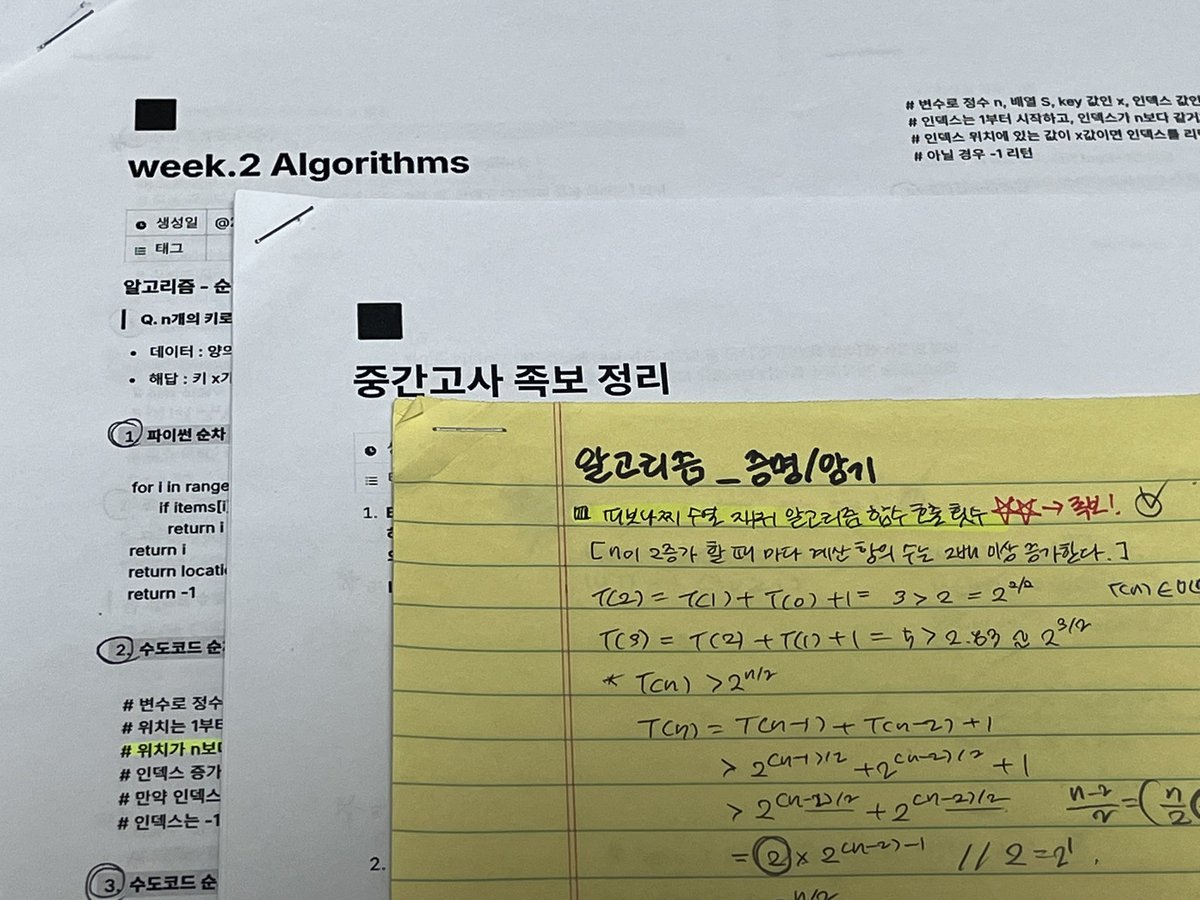 week.2 Algorithms
생성일 @2
태그
알고리즘 - 순
Q. n개의 키로
데이터 : 양의
해답 : 키 x가
1. 파이썬 순차
for i in range
if items[i
return i
return i
return locati
return -1
2. 수도코드 순
# 변수로 정수
# 위치는 1부터
# 위치가 n보다
# 인덱스 증가
# 만약 인덱스
# 인덱스는 -1
3. 수도코드 순
# 변수로 정수 n, 배열 S, key 값인 x, 인덱스 값인
# 인덱스는 1부터 시작하고, 인덱스가 n보다 같거
# 인덱스 위치에 있는 값이 x값이면 인덱스를 리
# 아닐 경우 -1 리턴
중간고사 족보 정리
1.
2.
알고리즘_증명/암기
피보나찌 수열 재귀 알고리즘 함수 호출 횟수 ☆☆→족보!
[n이 2증가 할 때 마다 계산 항의 수는 2배 이상 증가한다.]
T(2) = T(1) + T(0) +1 = 3 > 2 = 2^2/2 T(n) ∈
T(3) = T(2) + T(1) + 1 = 5 > 2.83 ≈ 2^3/2
* T(n) > 2^n/2
T(n) = T(n-1) + T(n-2) + 1
> 2^(n-1)/2 + 2^(n-2)/2 + 1
> 2^(n-2)/2 + 2^(n-2)/2 n-2/2 = (n/2
= 2 × 2^(n-2)-1 // 2 = 2^1.
n/2